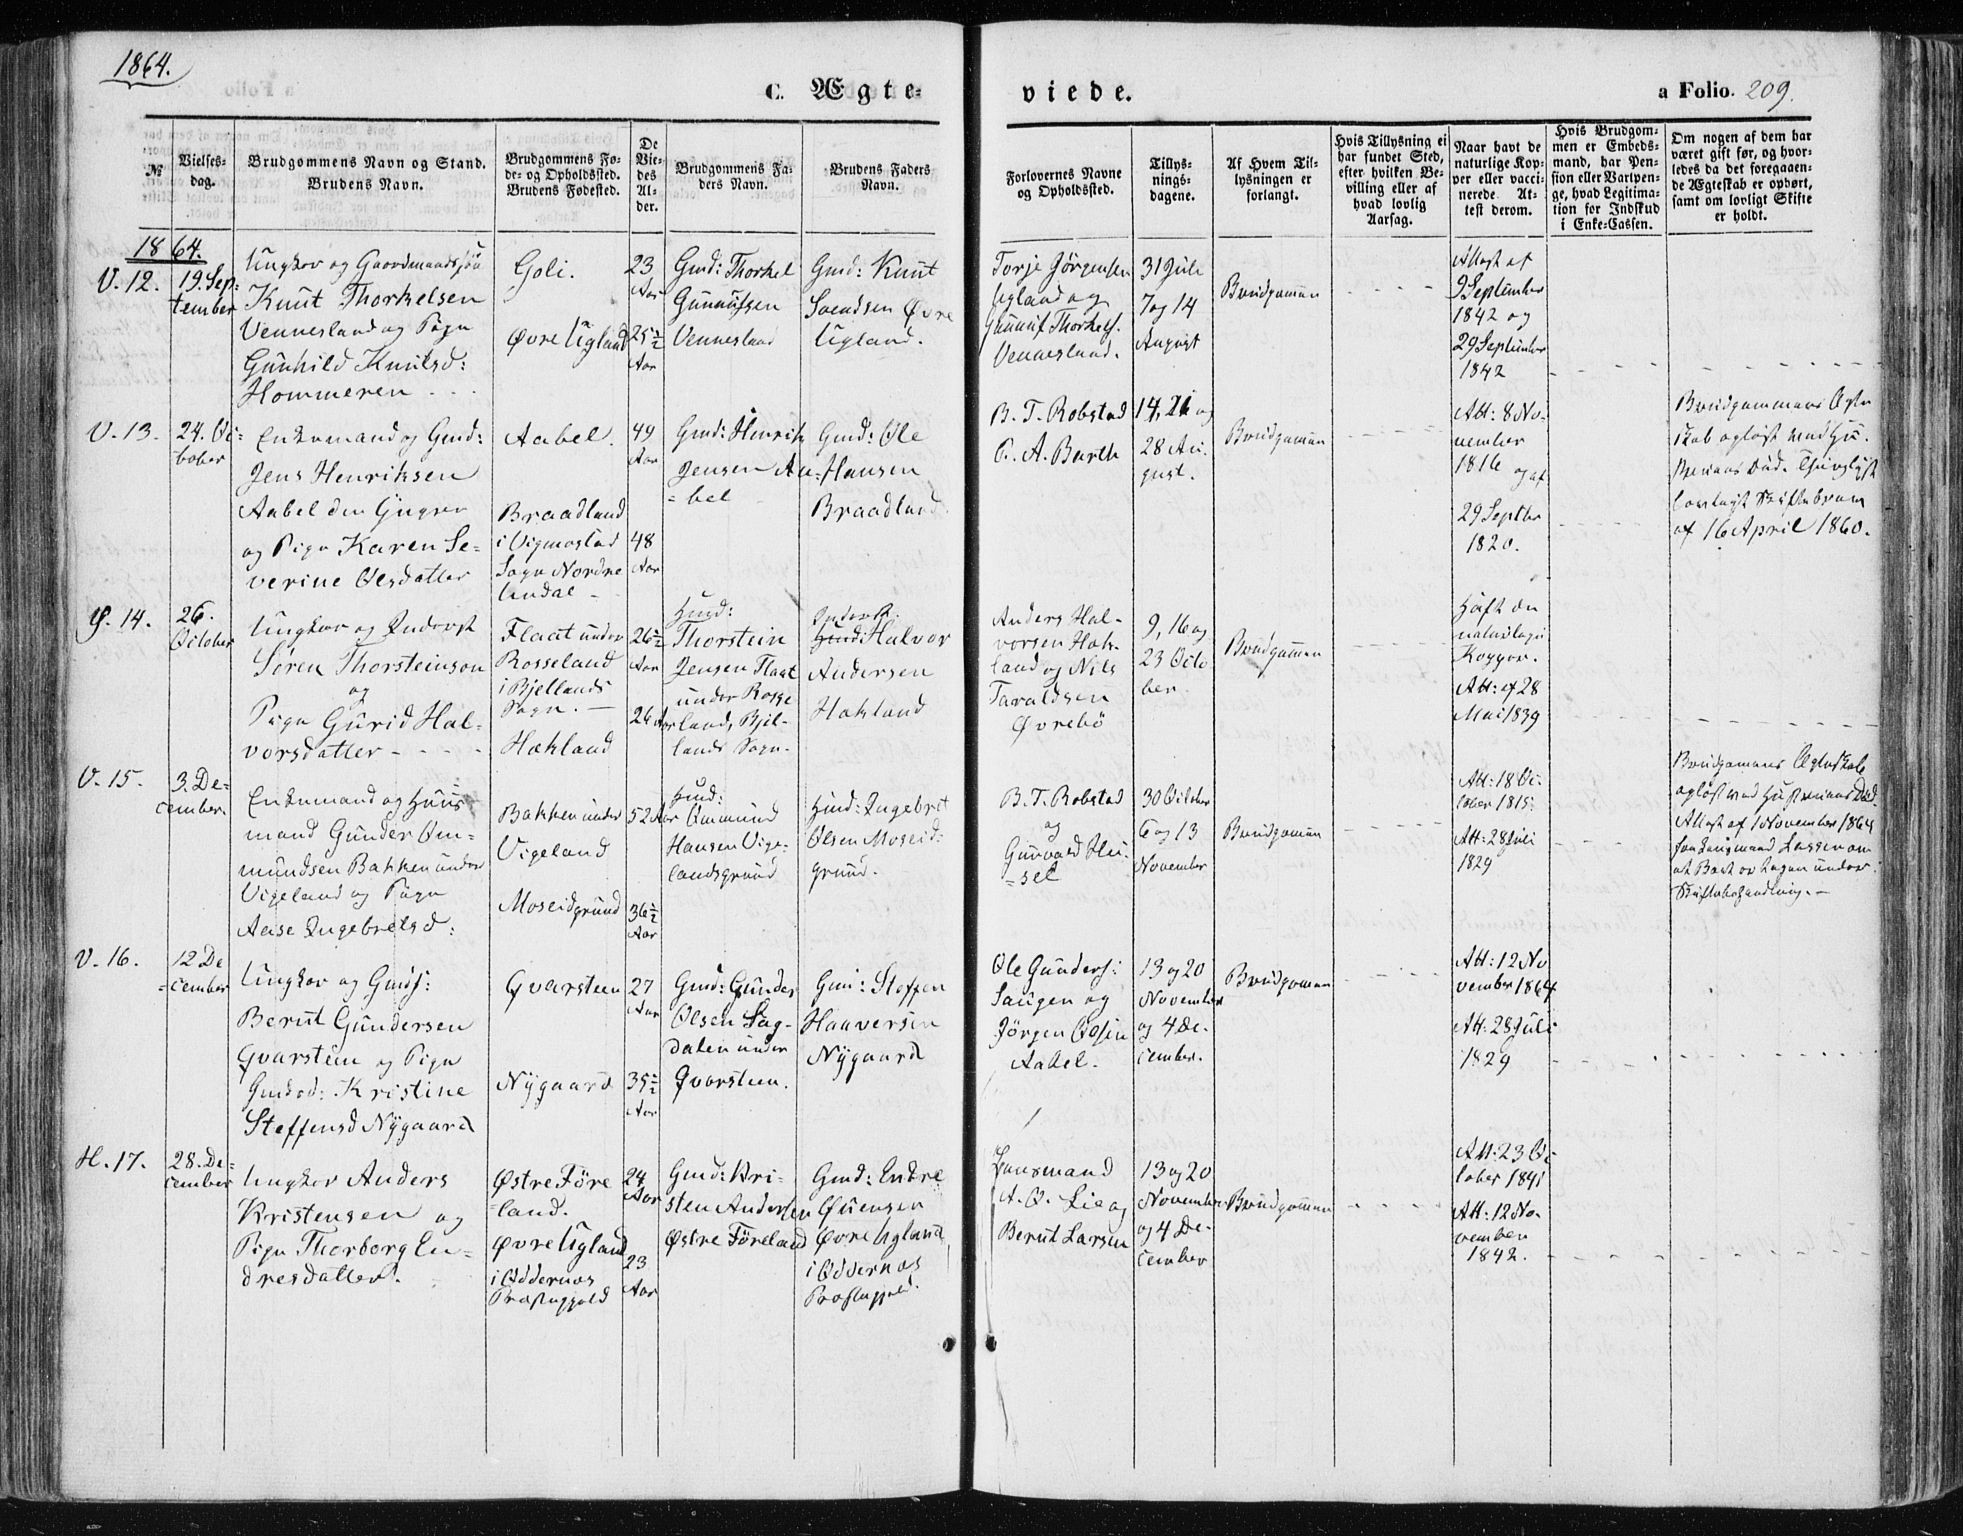 1864.
C. Ægte-
viede.
a Folio. 209.
№
Vielses-
dag.
Brudgommens Navn og Stand.
Brudens Navn.
Brudgommens Fø-
de- og Opholdssted.
Brudens Fødested.
De
Vie-
des
Al-
der.
Brudgommens Fa-
ders Navn.
Brudens Faders
Navn.
Forlovernes Navne
og Opholdssted.
Tillys-
nings-
dagene.
Af Hvem Til-
lysningen er
forlangt.
Hvis Tillysning ei
har fundet Sted,
efter hvilken Be-
villing eller af
hvad lovlig
Aarsag.
Naar havt de
naturlige Kop-
per eller vacci-
nerede. At-
test derom.
Hvis Brudgom-
men er Embeds-
mand, har Pen-
sion eller Vartpen-
ge, hvad Legitima-
tion for Indskud
i Enke-Cassen.
Om nogen af dem har
været gift før, og hvor-
ledes da det foregaaen-
de Ægteskab er ophørt,
samt om lovligt Skifte
er holdt.
1864.
V. 12.
19. Sep-
tember
Ungkar og Gaardmandssøn
Knut Thorkelsen
Vennesland og Pige
Gunhild Knutsd:
Hommeren - - -
Goli.
Øvre Ugland
23
Aar
25½
Aar
Gmd: Thorkel
Gunnufsen
Vennesland
Gmd: Knut
Svendsen Øvre
Ugland.
Torje Jörgensen
Ugland og
Gunnuf Thorkels.
Vennesland.
31 Juli
7 og 14
August
Brudgommen
Attest af
9 September
1842 og
29 September
1842
V. 13.
24. Oc-
tober
Enkemand og Gmd:
Jens Henriksen
Aabel den Yngre
og Pige Karen Se-
verine Olsdatter
Aabel.
Braadland
i Vigmostad
Sogn Nordre
Undal -
49
Aar
48
Aar
Gmd: Henrik
Jensen Aa-
=bel
Gmd: Ole
Hansen
Braadland
B. T. Robstad
O. A. Barth
14, 21 og
28 Au-
gust.
Brudgommen
Att: 8 No-
vember
1816
og af
29 Septbr
1820.
Brudgommens Ægte
skab opløst ved Hu-
struens Død.
af 16 April 1860.
Ø. 14.
26.
October
Ungkar og Inderst
Søren Thorsteinson
og
Pige Gurid Hal-
vorsdatter - - -
Flaat under
Rosseland
i Bjellands
Sogn. -
Hakland
26½
Aar
26 Aar
Hmd:
Thorstein
Jensen Flaat
under Rosse
land, Bjel-
lands Sogn.
Inderst:
Halvor
Andersen
Hakland
Anders Hal-
vorsen Hak-
land og Nils
Taraldsen
Øvrebö
9, 16 og
23 Octo
ber.
Brudgommen
Haft de
naturlige
Kopper.
Att: af 28
Mai 1839
V. 15.
3. De-
cember.
Enkemand og Huus
mand Gunder Om-
mundsen Bakken under
Vigeland og Pige
Aase Ingebretsd:
Bakken under
Vigeland
Moseidgrund
52 Aar
36½
Aar
Hmd:
Ommund
Hansen Vige-
landsgrund
Hmd: Ingebret
Olsen Moseid-
grund.
B. T. Robstad
og
Gunvald Hu-
=set
30 October
6 og 13
November
Brudgommen
Att: 18 Oc-
tober 1815.
Att: 28 Juli
1829
Brudgommens Ægteskab
opløst ved Hustruens Død.
Attest af 1 November 1864
fra Lensmand Lassen om
at Boet er tagen under
Skiftebehandling. -
V. 16.
12 De
=cember
Ungkar og Gmds:
Berut Gundersen
Qvarstein og Pige
Gmdsd: Kristine
Steffensd Nygaard
Qvarsteen
Nygaard
27
Aar
35½
Aar
Gmd: Gunder
Olsen Sag-
dalen under
Qvarsteen.
Gmd: Steffen
Haaversen
Nygaard
Ole Gunders:
Saugen og
Jörgen Olsen
Aabel.
13 og 20
November
og 4 De-
cember.
Brudgommen
Att: 12 No
vember 1864
Att: 28 Juli
1829
H. 17.
28. De-
cember
Ungkar Anders
Kristensen og
Pige Thorborg En-
dresdatter.
Østre Före
=land.
Øvre Ugland
i Oddernes
Præstegjeld
24
Aar
23
Aar
Gmd: Kri-
sten Andersen
Østre Föreland
Gmd: Endre
Øvre Ugland
i Oddernes
Præstegjeld.
Lensmand
A. O. Lie og
Berut Larsen
13 og 20
November
og 4 De-
cember
Brudgommen
Att: 23 Oc
tober 1841
Att: 12 No-
vember
1842.